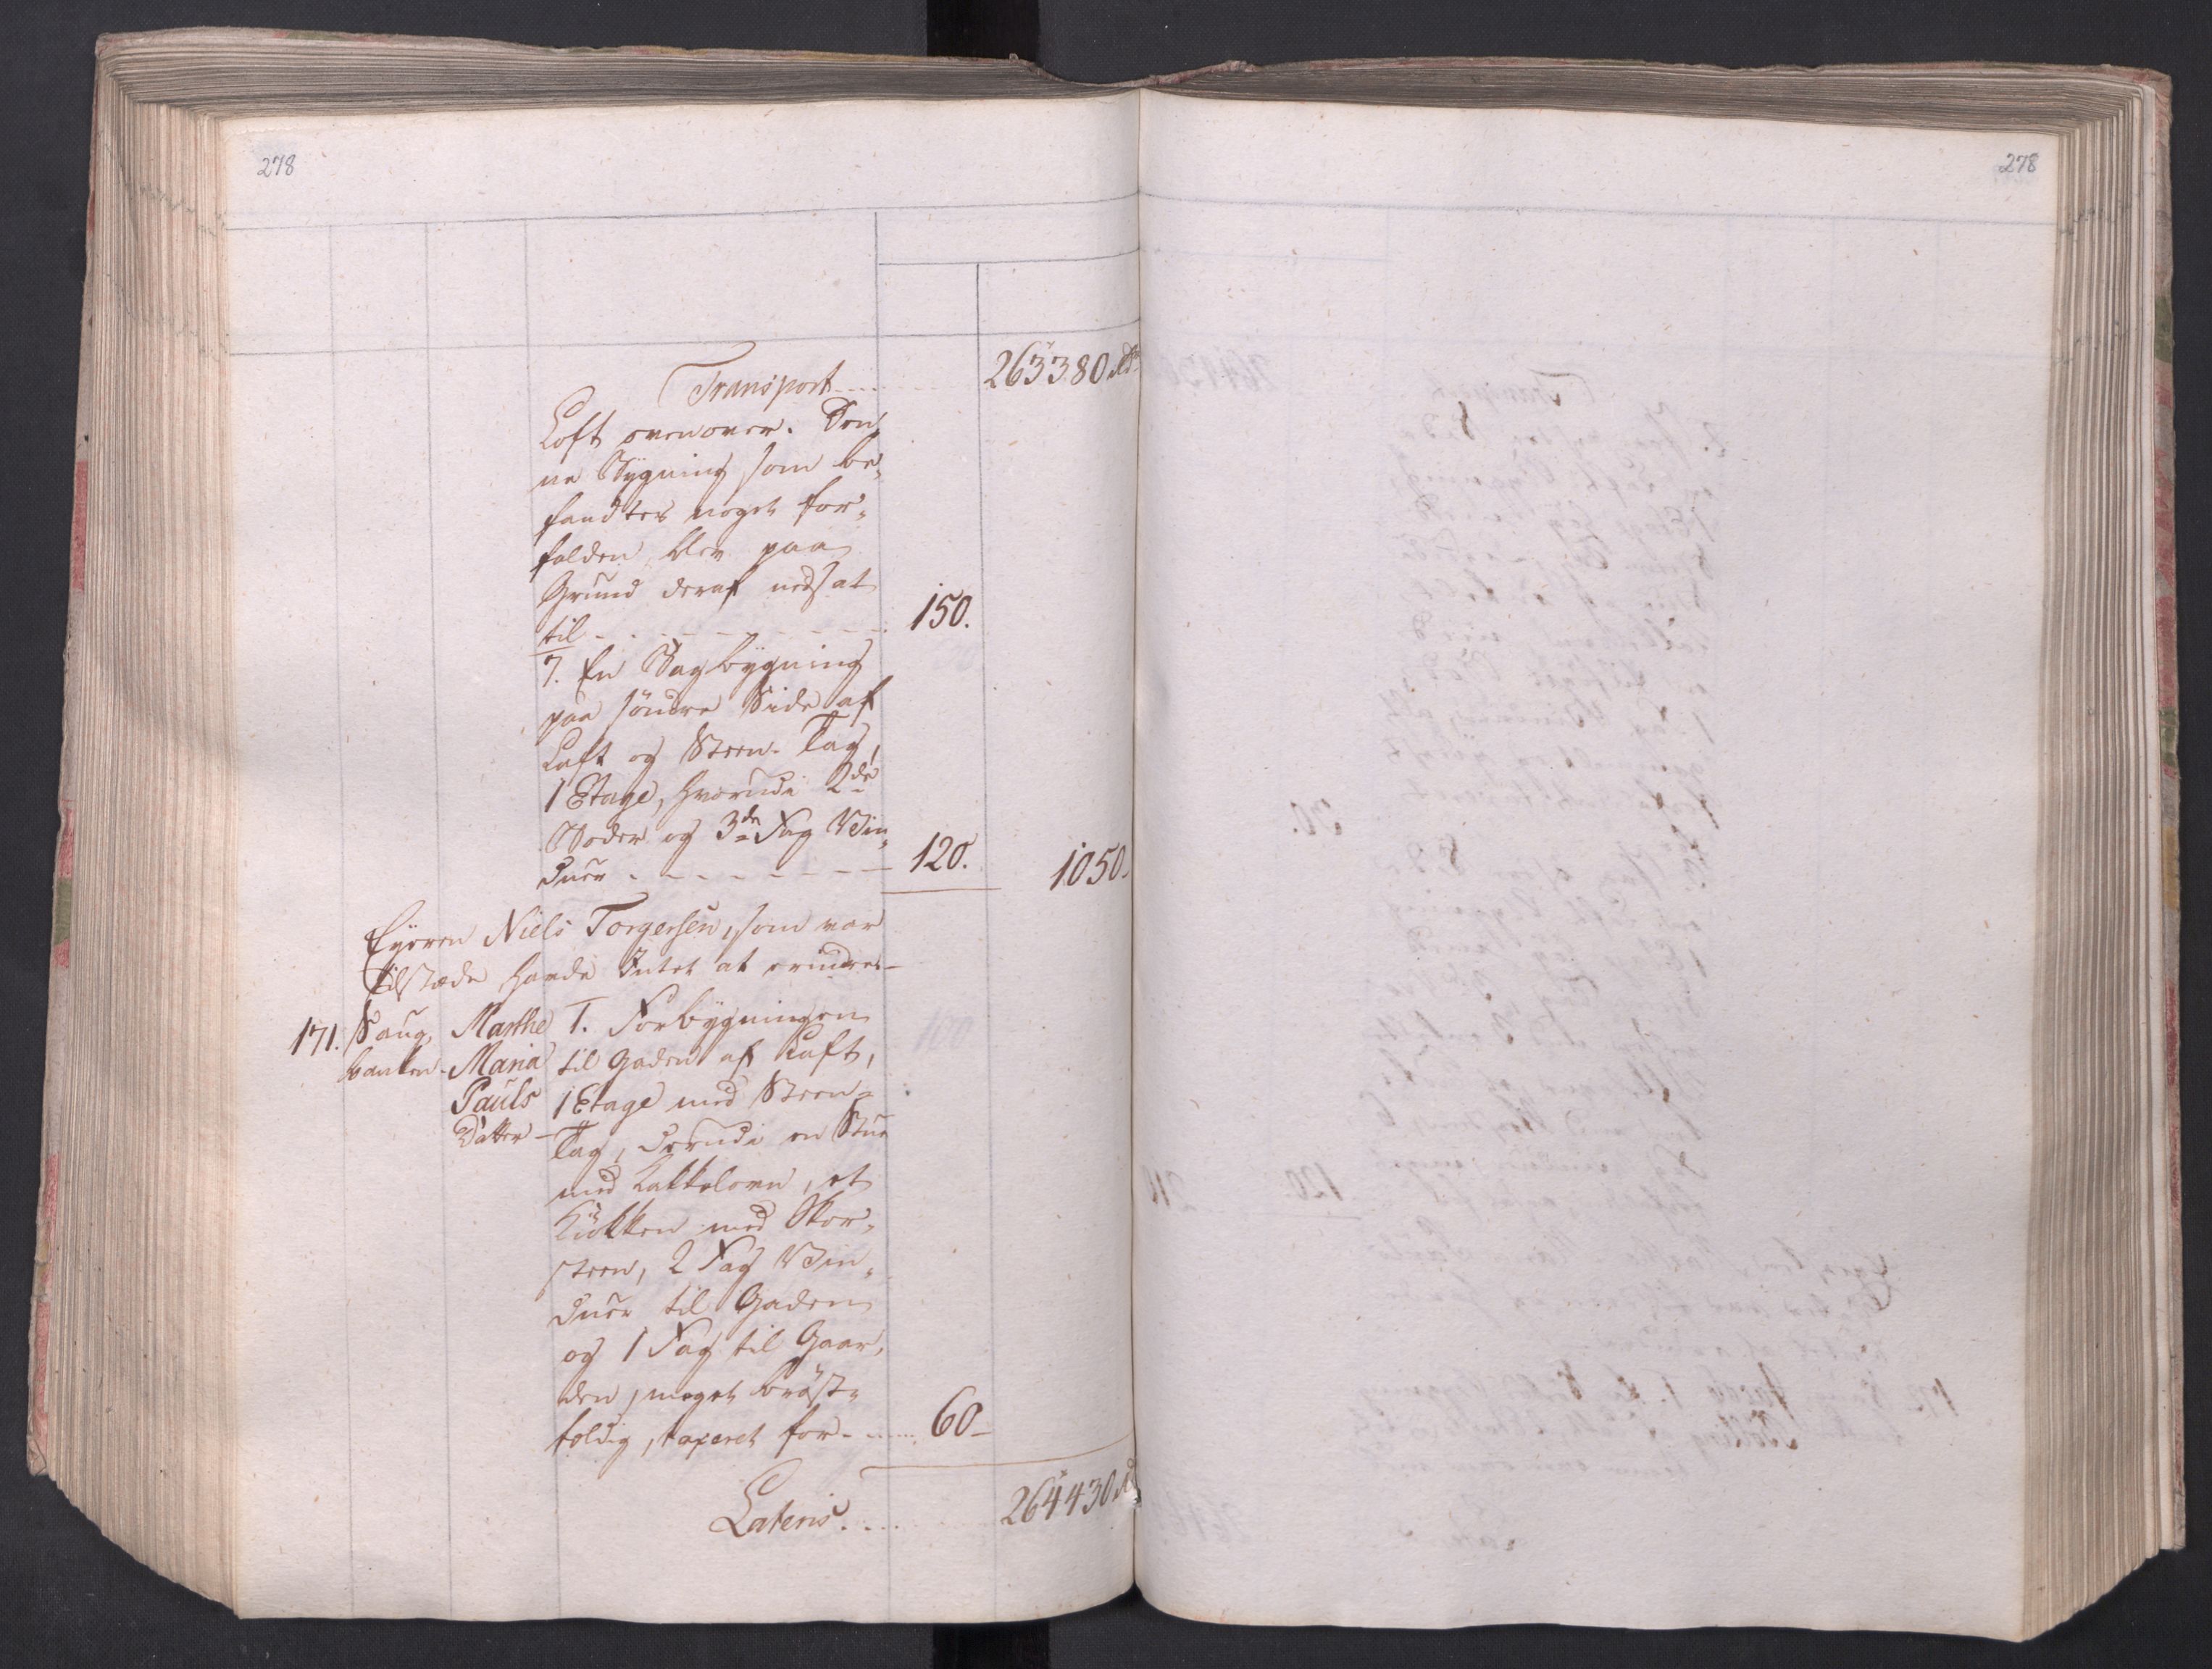 278
278
Transport .... 263380 Rd
Loft ovenover. Den,
ne Bygning som be,
fandtes noget for,
falden, blev paa
Grund deraf nedsat
til - - - - - - - 150.
7. En Bagbygning
paa söndre Side af
Laft og Steen-Tag,
1 Etage, hvorudi 2de
Boder og 3de Fag Vin,
duer - - - - - - - 120. 1050.
Eyeren Niels Torgersen, som var
tilstæde havde Intet at erindre -
171. Saug, Marthe 1. Forbygningen
banken. Maria til Gaden af Laft,
Pauls 1 Etage med Steen-
Datter - Tag, derudi en Stue
med Kakkelovn, et
Kiökken med Skor,
steen, 2 Fag Vin,
duer til Gaden
og 1 Fag til Gaar,
den, meget bröst-
foldig, taxeret for - .... 60 -
Lateris .... 264430 Rd